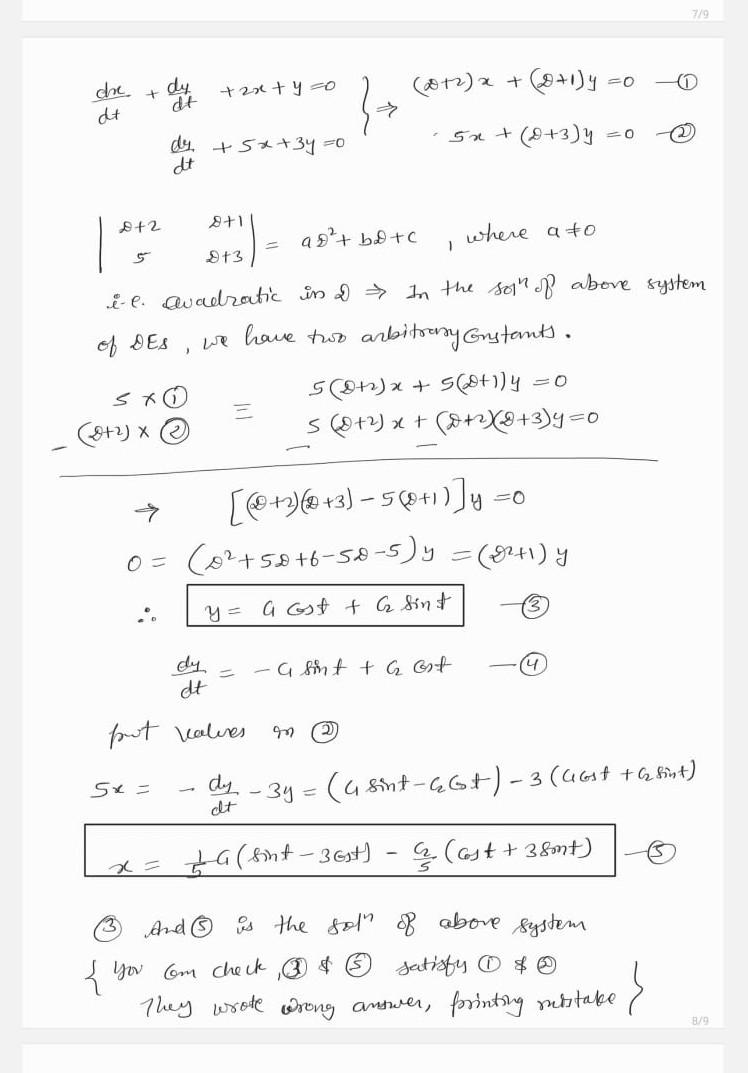 7/9
dx/dt + dy/dt + 2x + y = 0 } ⇒ (D+2)x + (D+1)y = 0 —①
dy/dt + 5x + 3y = 0 5x + (D+3)y = 0 —②
| D+2 D+1 |
| 5 D+3 | = aD² + bD + c , where a ≠ 0
i.e. Quadratic in D ⇒ In the solⁿ of above system
of DEs, we have two arbitrary Constants.
5 × ① ≡ 5(D+2)x + 5(D+1)y = 0
– (D+2) × ② 5(D+2)x + (D+2)(D+3)y = 0
– –
⇒ [(D+2)(D+3) – 5(D+1)]y = 0
0 = (D² + 5D + 6 – 5D – 5)y = (D²+1)y
∴ y = C₁ Cost + C₂ Sint —③
dy/dt = – C₁ Sint + C₂ Cost —④
put values in ②
5x = – dy/dt – 3y = (C₁ Sint – C₂ Cost) – 3(C₁ Cost + C₂ Sint)
x = 1/5 C₁ (Sint – 3Cost) – C₂/5 (Cost + 3Sint) —⑤
③ And ⑤ is the solⁿ of above system
{ You Can check, ③ & ⑤ satisfy ① & ②
They wrote wrong answer, printing mistake }
8/9